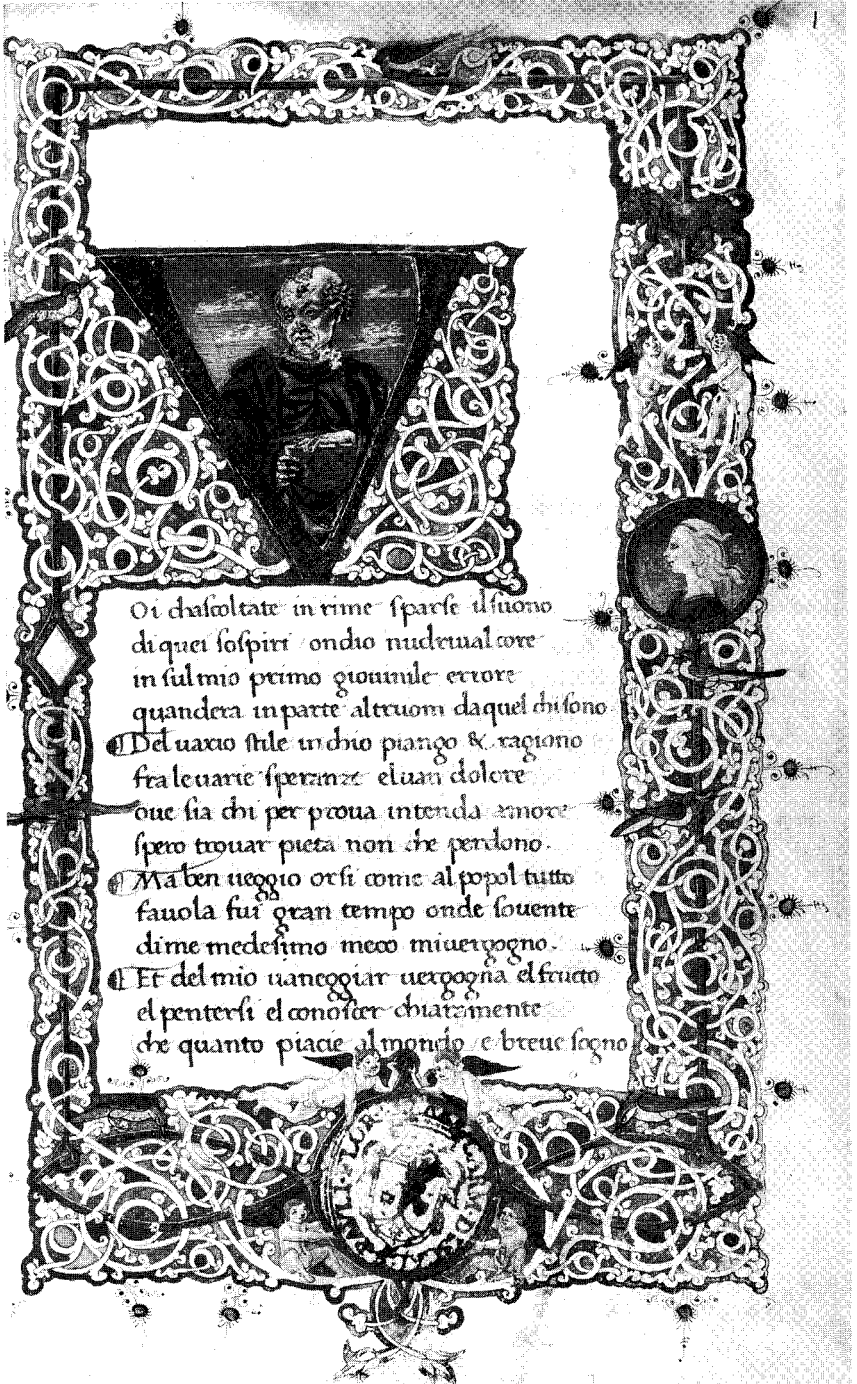 1
VOi chascoltate in rime sparse il suono
di quei sospiri ondio nudriual core
in sul mio primo giouinile errore
quandera in parte altruom da quel chi sono
Del uario stile in chio piango & ragiono
fra le uane speranze el uan dolore
oue sia chi per proua intenda amore
spero trouar pieta non che perdono.
Ma ben ueggio or si come al popol tutto
fauola fui gran tempo onde souente
di me medesimo meco mi uergogno.
Et del mio uaneggiar uergogna el fructo
el pentersi el conoscer chiaramente
che quanto piacie al mondo e breue sogno